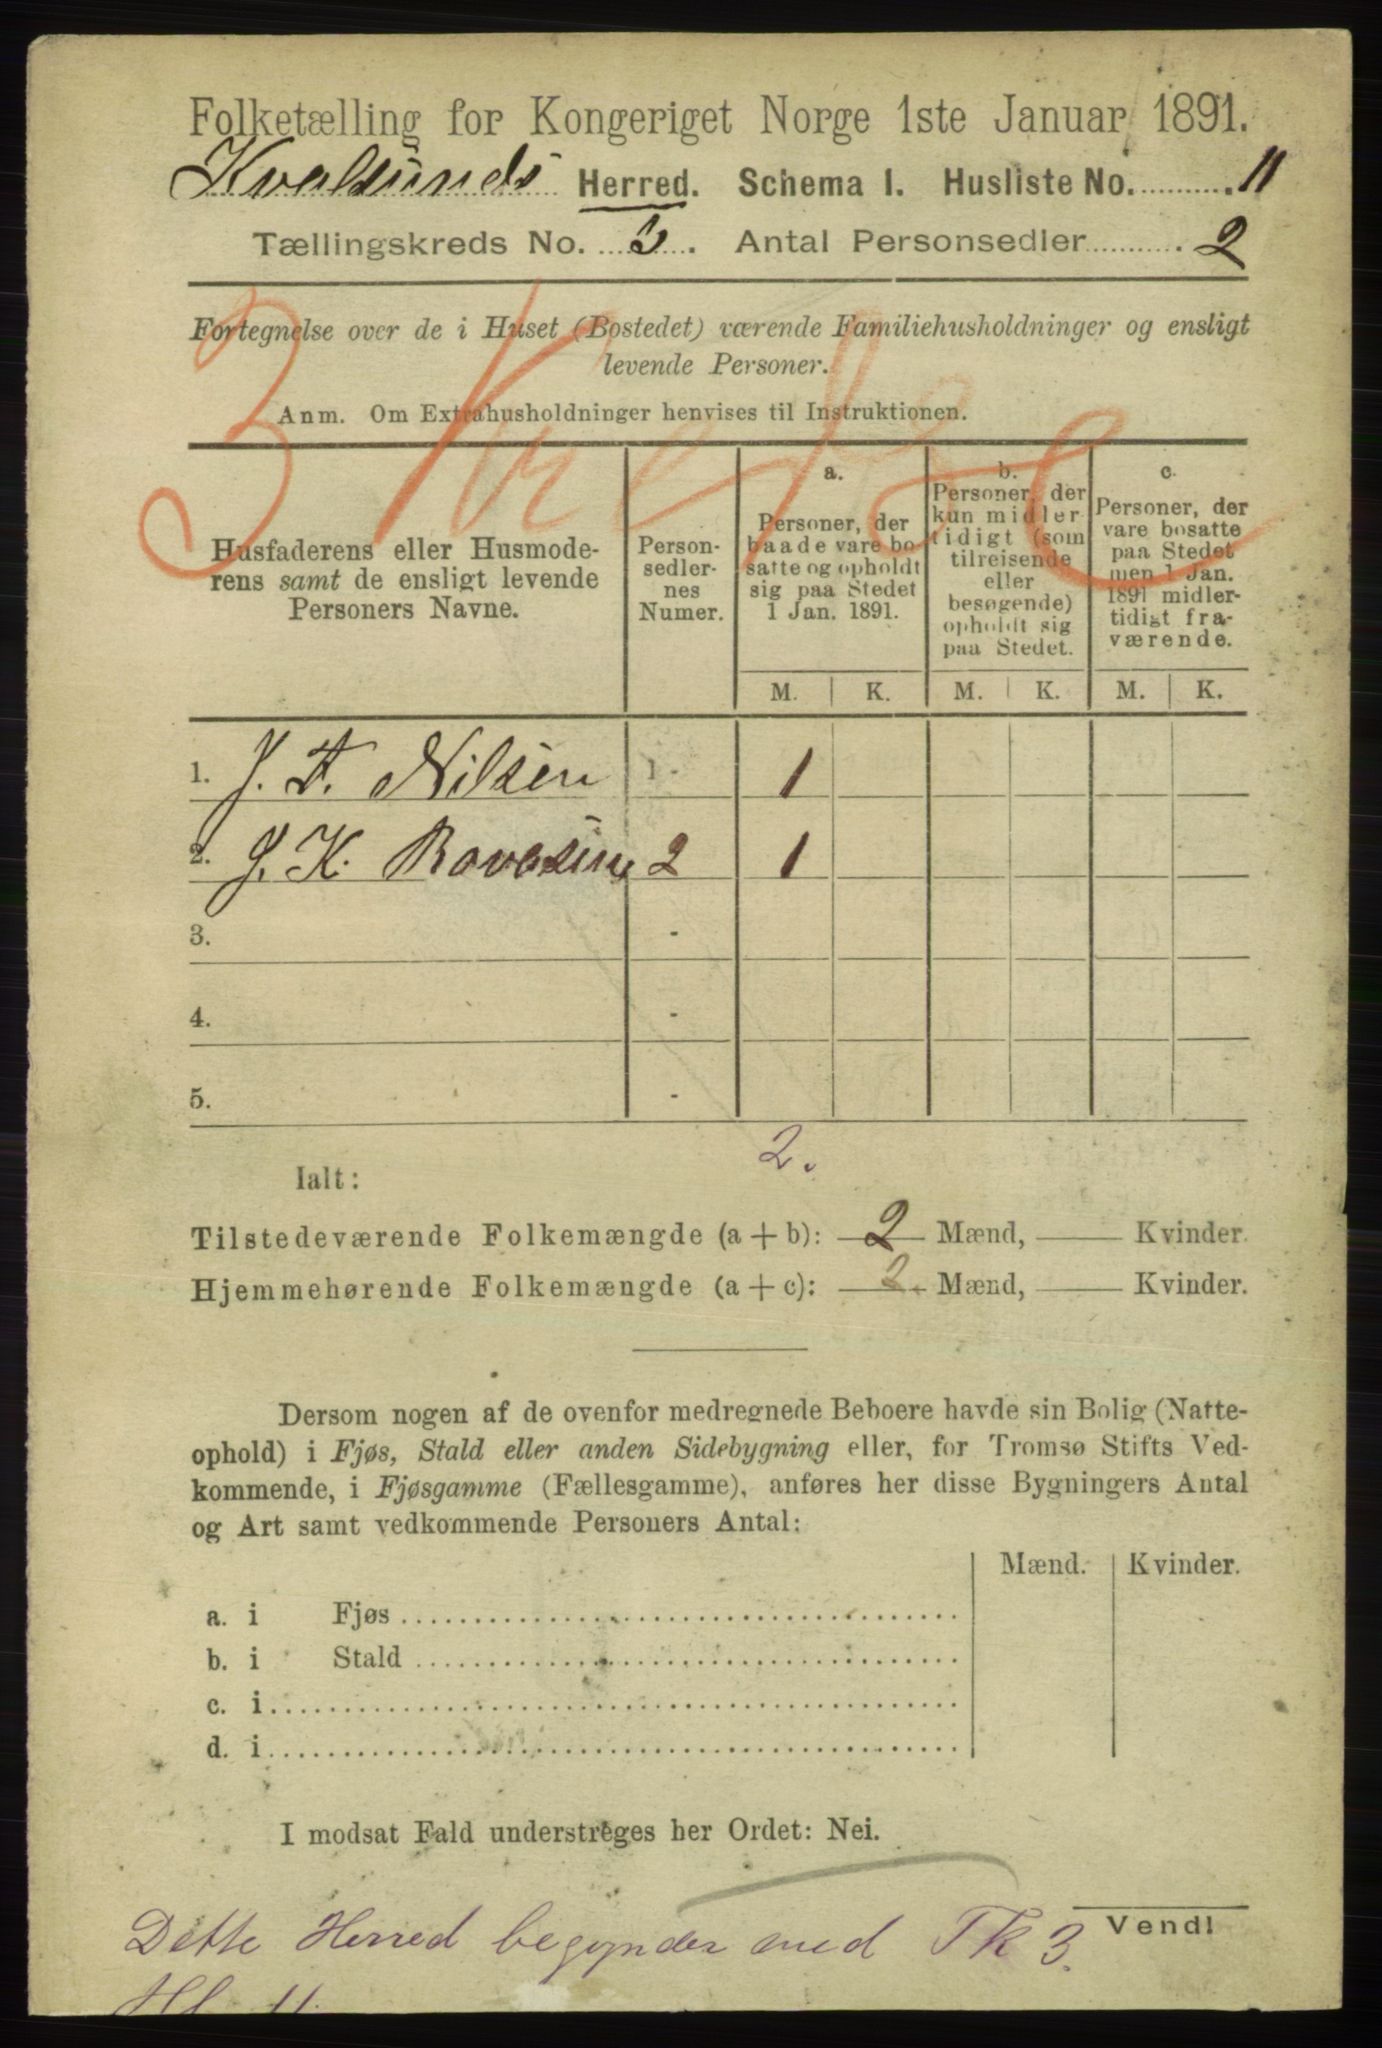 Folketælling for Kongeriget Norge 1ste Januar 1891.
Kvalsunds Herred. Schema I. Husliste No. 11
Tællingskreds No. 3. Antal Personsedler 2
Fortegnelse over de i Huset (Bostedet) værende Familiehusholdninger og ensligt
levende Personer.
Anm. Om Extrahusholdninger henvises til Instruktionen.
3 Kreds
Husfaderens eller Husmode-
rens samt de ensligt levende
Personers Navne.
Person-
sedler-
nes
Numer.
a.
Personer, der
baade vare bo-
satte og opholdt
sig paa Stedet
1 Jan. 1891.
b.
Personer, der
kun midler-
tidigt (som
tilreisende
eller
besøgende)
opholdt sig
paa Stedet.
c.
Personer, der
vare bosatte
paa Stedet
men 1 Jan.
1891 midler-
tidigt fra-
værende.
M. K. M. K. M. K.
1. J. F. Nilsen 1 - 1
2. J. K. 2 1
3. -
4. -
5. -
2.
Ialt:
Tilstedeværende Folkemængde (a + b): 2 Mænd, Kvinder.
Hjemmehørende Folkemængde (a + c): 2. Mænd, Kvinder.
Dersom nogen af de ovenfor medregnede Beboere havde sin Bolig (Natte-
ophold) i Fjøs, Stald eller anden Sidebygning eller, for Tromsø Stifts Ved-
kommende, i Fjøsgamme (Fællesgamme), anføres her disse Bygningers Antal
og Art samt vedkommende Personers Antal:
Mænd. Kvinder.
a. i Fjøs
b. i Stald
c. i
d. i
I modsat Fald understreges her Ordet: Nei.
Vend!
Dette Herred begynder med Tk 3.
Hl. 11.